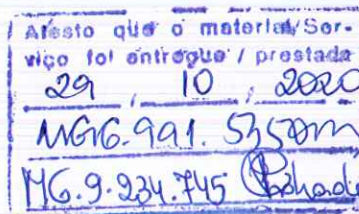 Atesto que o material/Ser-
viço foi entregue / prestada
29 / 10 / 2020
MG16.991.535
MG.9.234.745